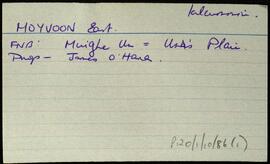 Kilcummin.
MOYVOON East.
FNB: Muighe Un = Una's Plain.
Props - James O'Hara.
P120/1/10/86(1)